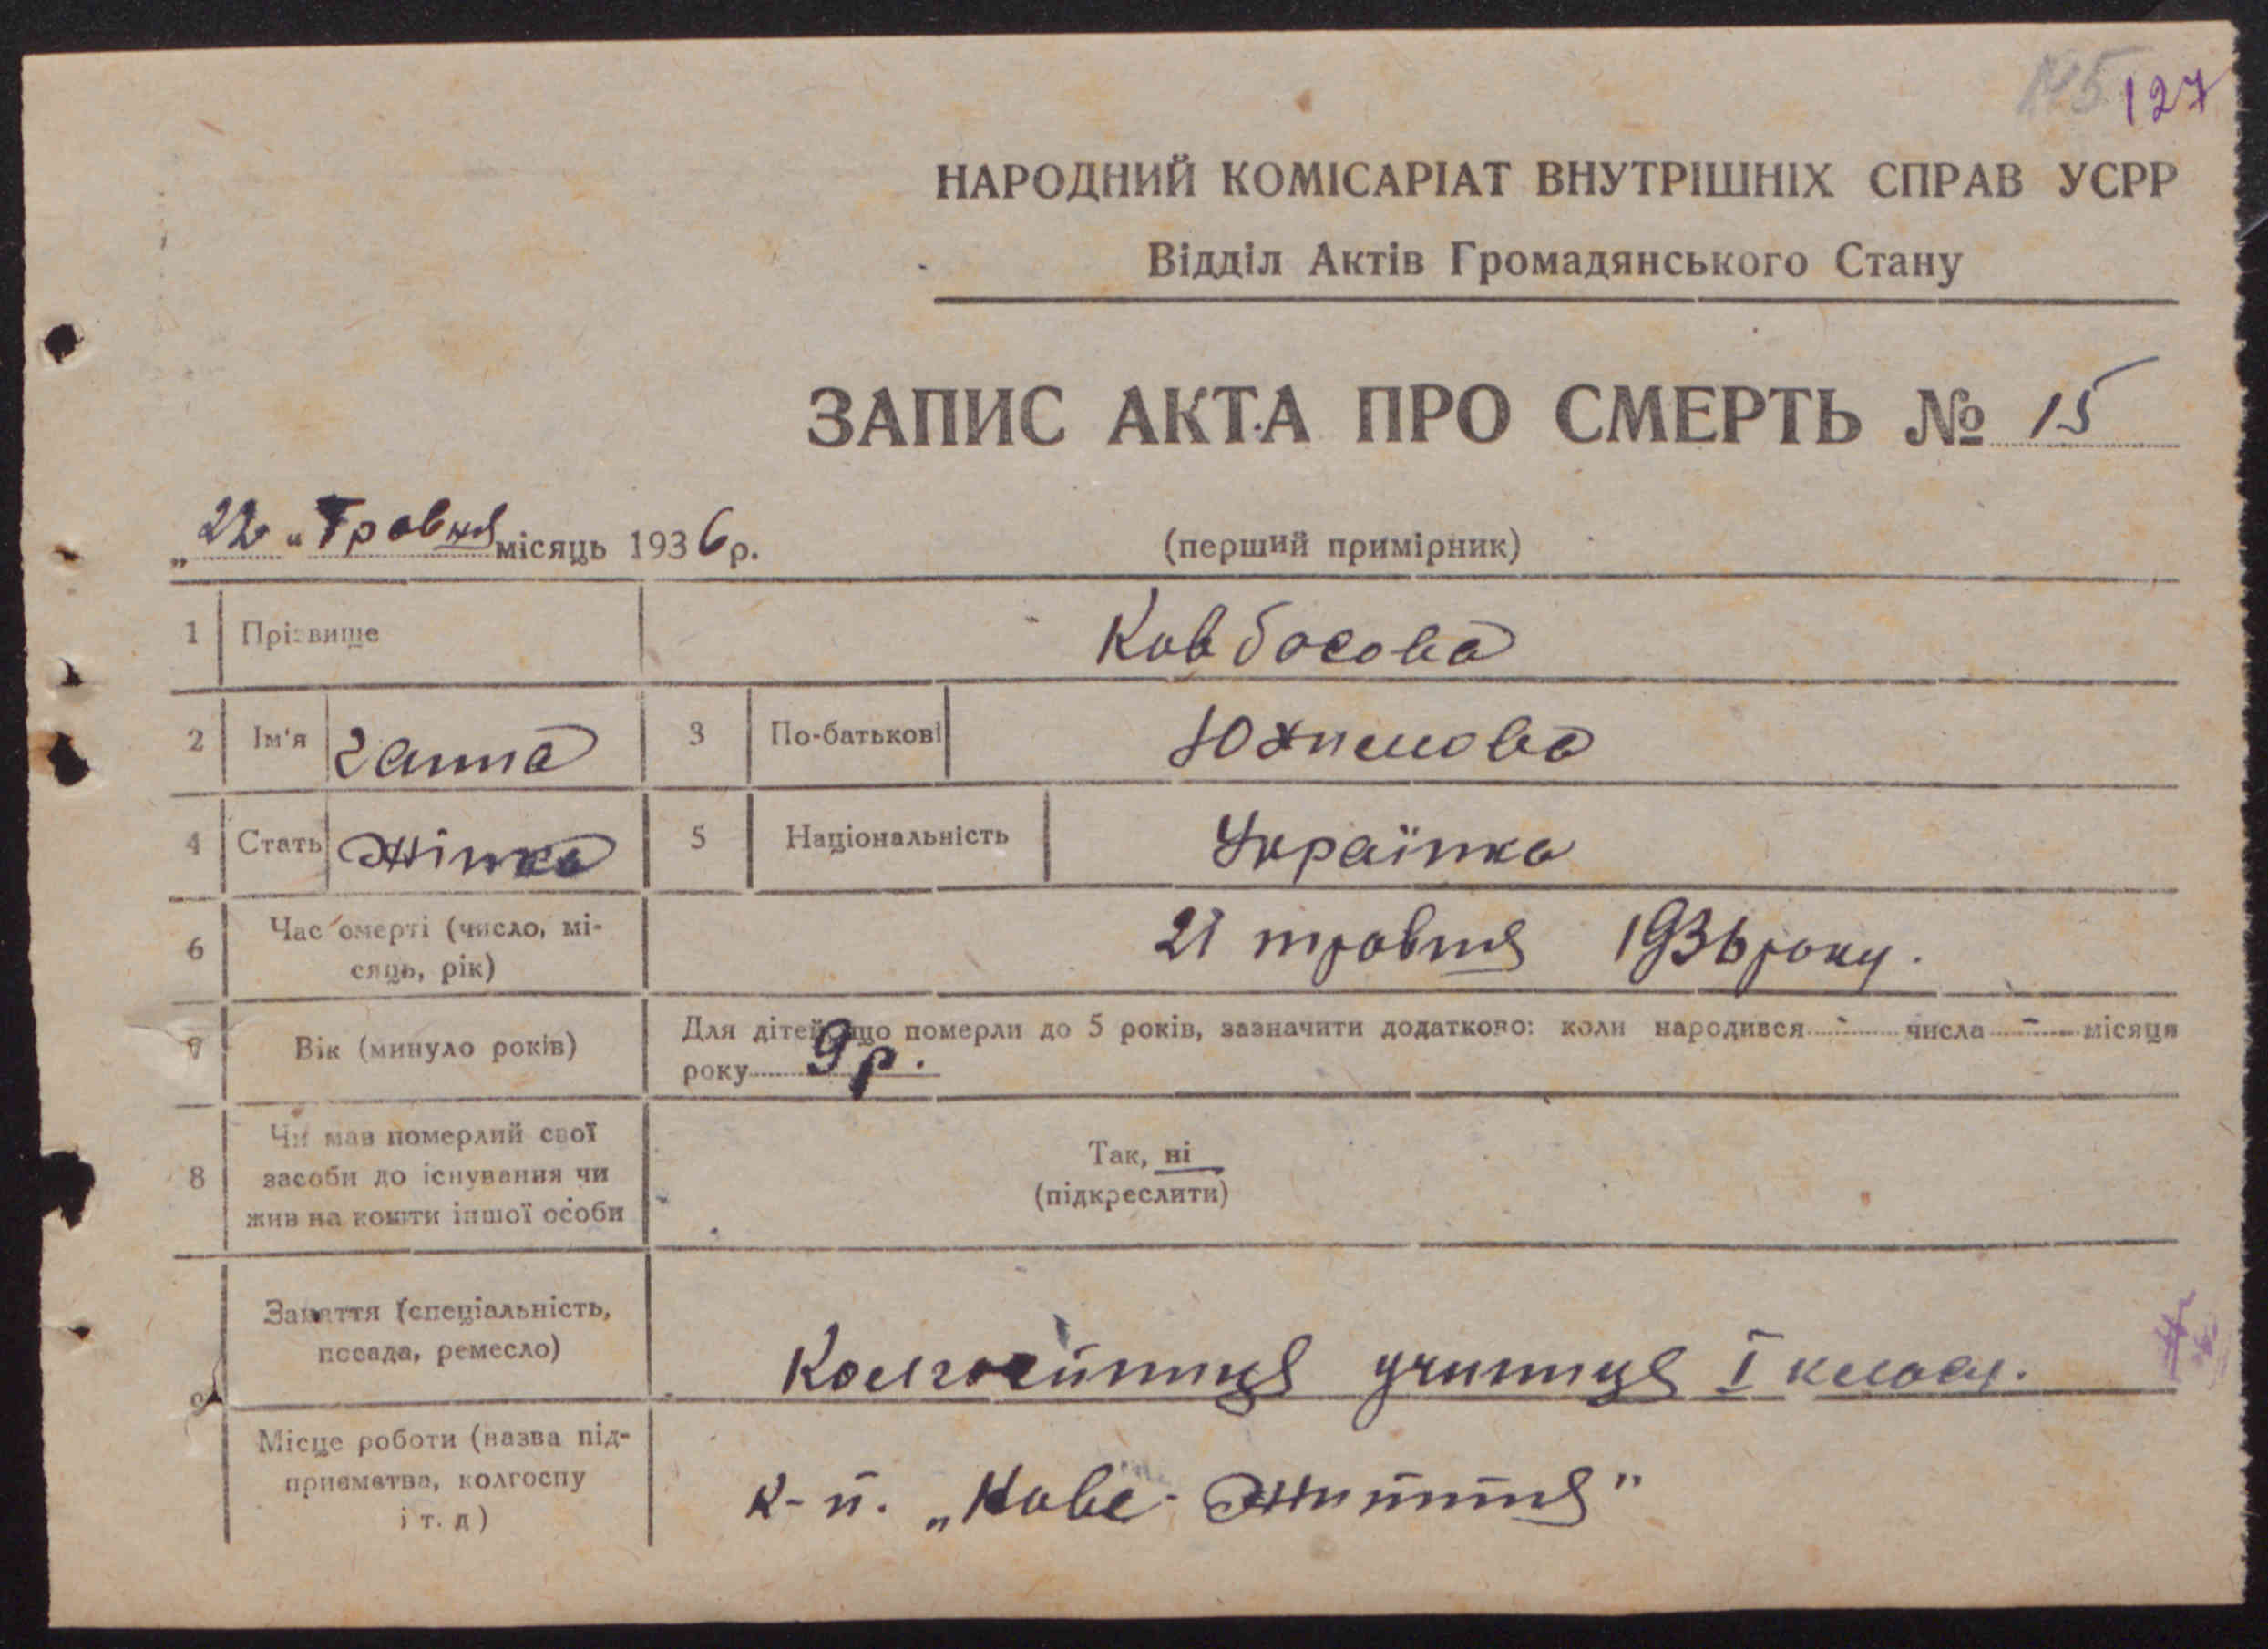 145 127
НАРОДНИЙ КОМІСАРІАТ ВНУТРІШНІХ СПРАВ УСРР
Відділ Актів Громадянського Стану
ЗАПИС АКТА ПРО СМЕРТЬ № 15
„22" Травня місяць 1936 р.
(перший примірник)
1 Прізвище Ковбасова
2 Ім'я Ганна 3 По-батькові Юхимова
4 Стать Жінка 5 Національність Українка
6 Час смерті (число, мі-
сяць, рік) 21 травня 1936 року.
7 Вік (минуло років) Для дітей, що померли до 5 років, зазначити додатково: коли народився - числа - місяця
року 9 р.
8 Чи мав померлий свої
засоби до існування чи
жив на кошти іншої особи
Так, ні
(підкреслити)
9 Заняття (спеціальність,
посада, ремесло) Колгоспниця учениця І класу.
Місце роботи (назва під-
приємства, колгоспу
і т. д) к-п. „Нове-Життя"